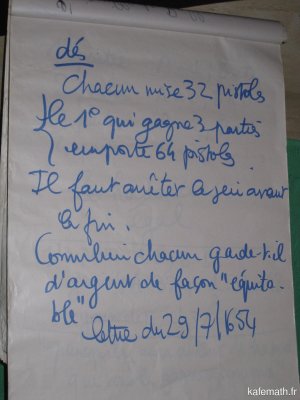 dés
Chacun mise 32 pistols
le 1° qui gagne 3 parties
emporte 64 pistols
Il faut arrêter le jeu avant
la fin.
Combien chacun garde-t-il
d'argent de façon "équita-
ble"
lettre du 29/7/1654
kafemath.fr